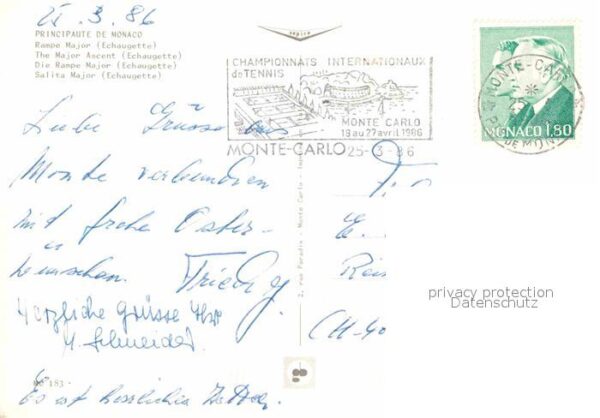 25.3.86
PRINCIPAUTE DE MONACO
Rampe Major (Echaugette)
The Major Ascent (Echaugette)
Die Rampe Major (Echaugette)
Salita Major (Echaugette)
CHAMPIONNATS INTERNATIONAUX
de TENNIS
MONTE CARLO
19 au 27 avril 1986
MONTE-CARLO 25-3-86
MONTE-CARLO
MONACO 1,80
Liebe Grüsse aus
Monte verbunden
mit frohe Oster-
wünschen.
Herzliche Grüsse Ihr
H. Schneider.
Es ist herrliches Wetter.
2, rue Paradis - Monte Carlo
E.
Reis
CH-40
MC 183
privacy protection
Datenschutz